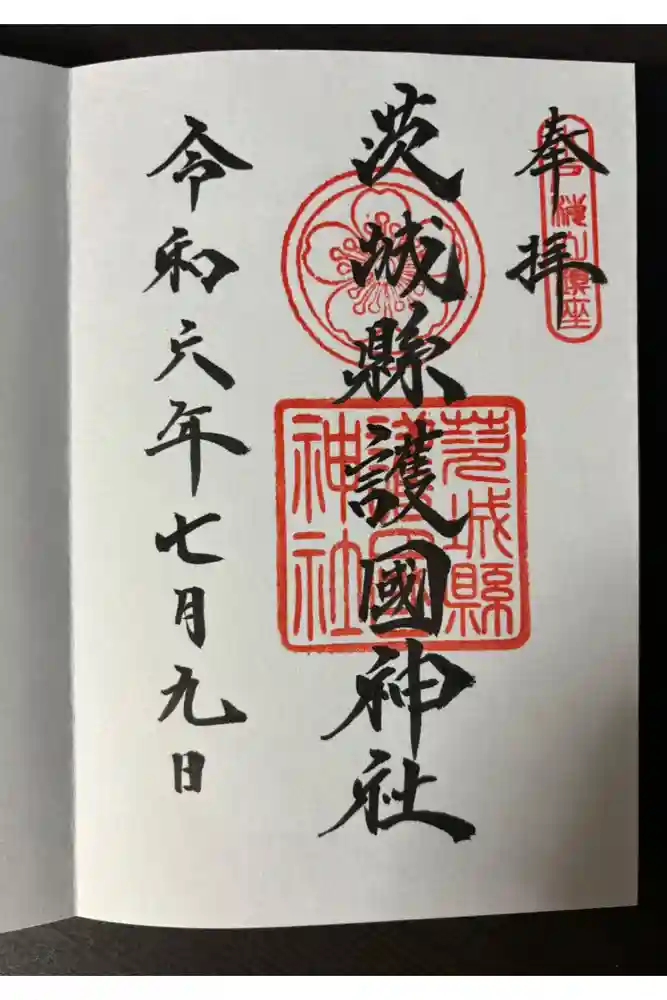 奉拝
茨城縣護國神社
茨城縣護國神社
令和六年七月九日